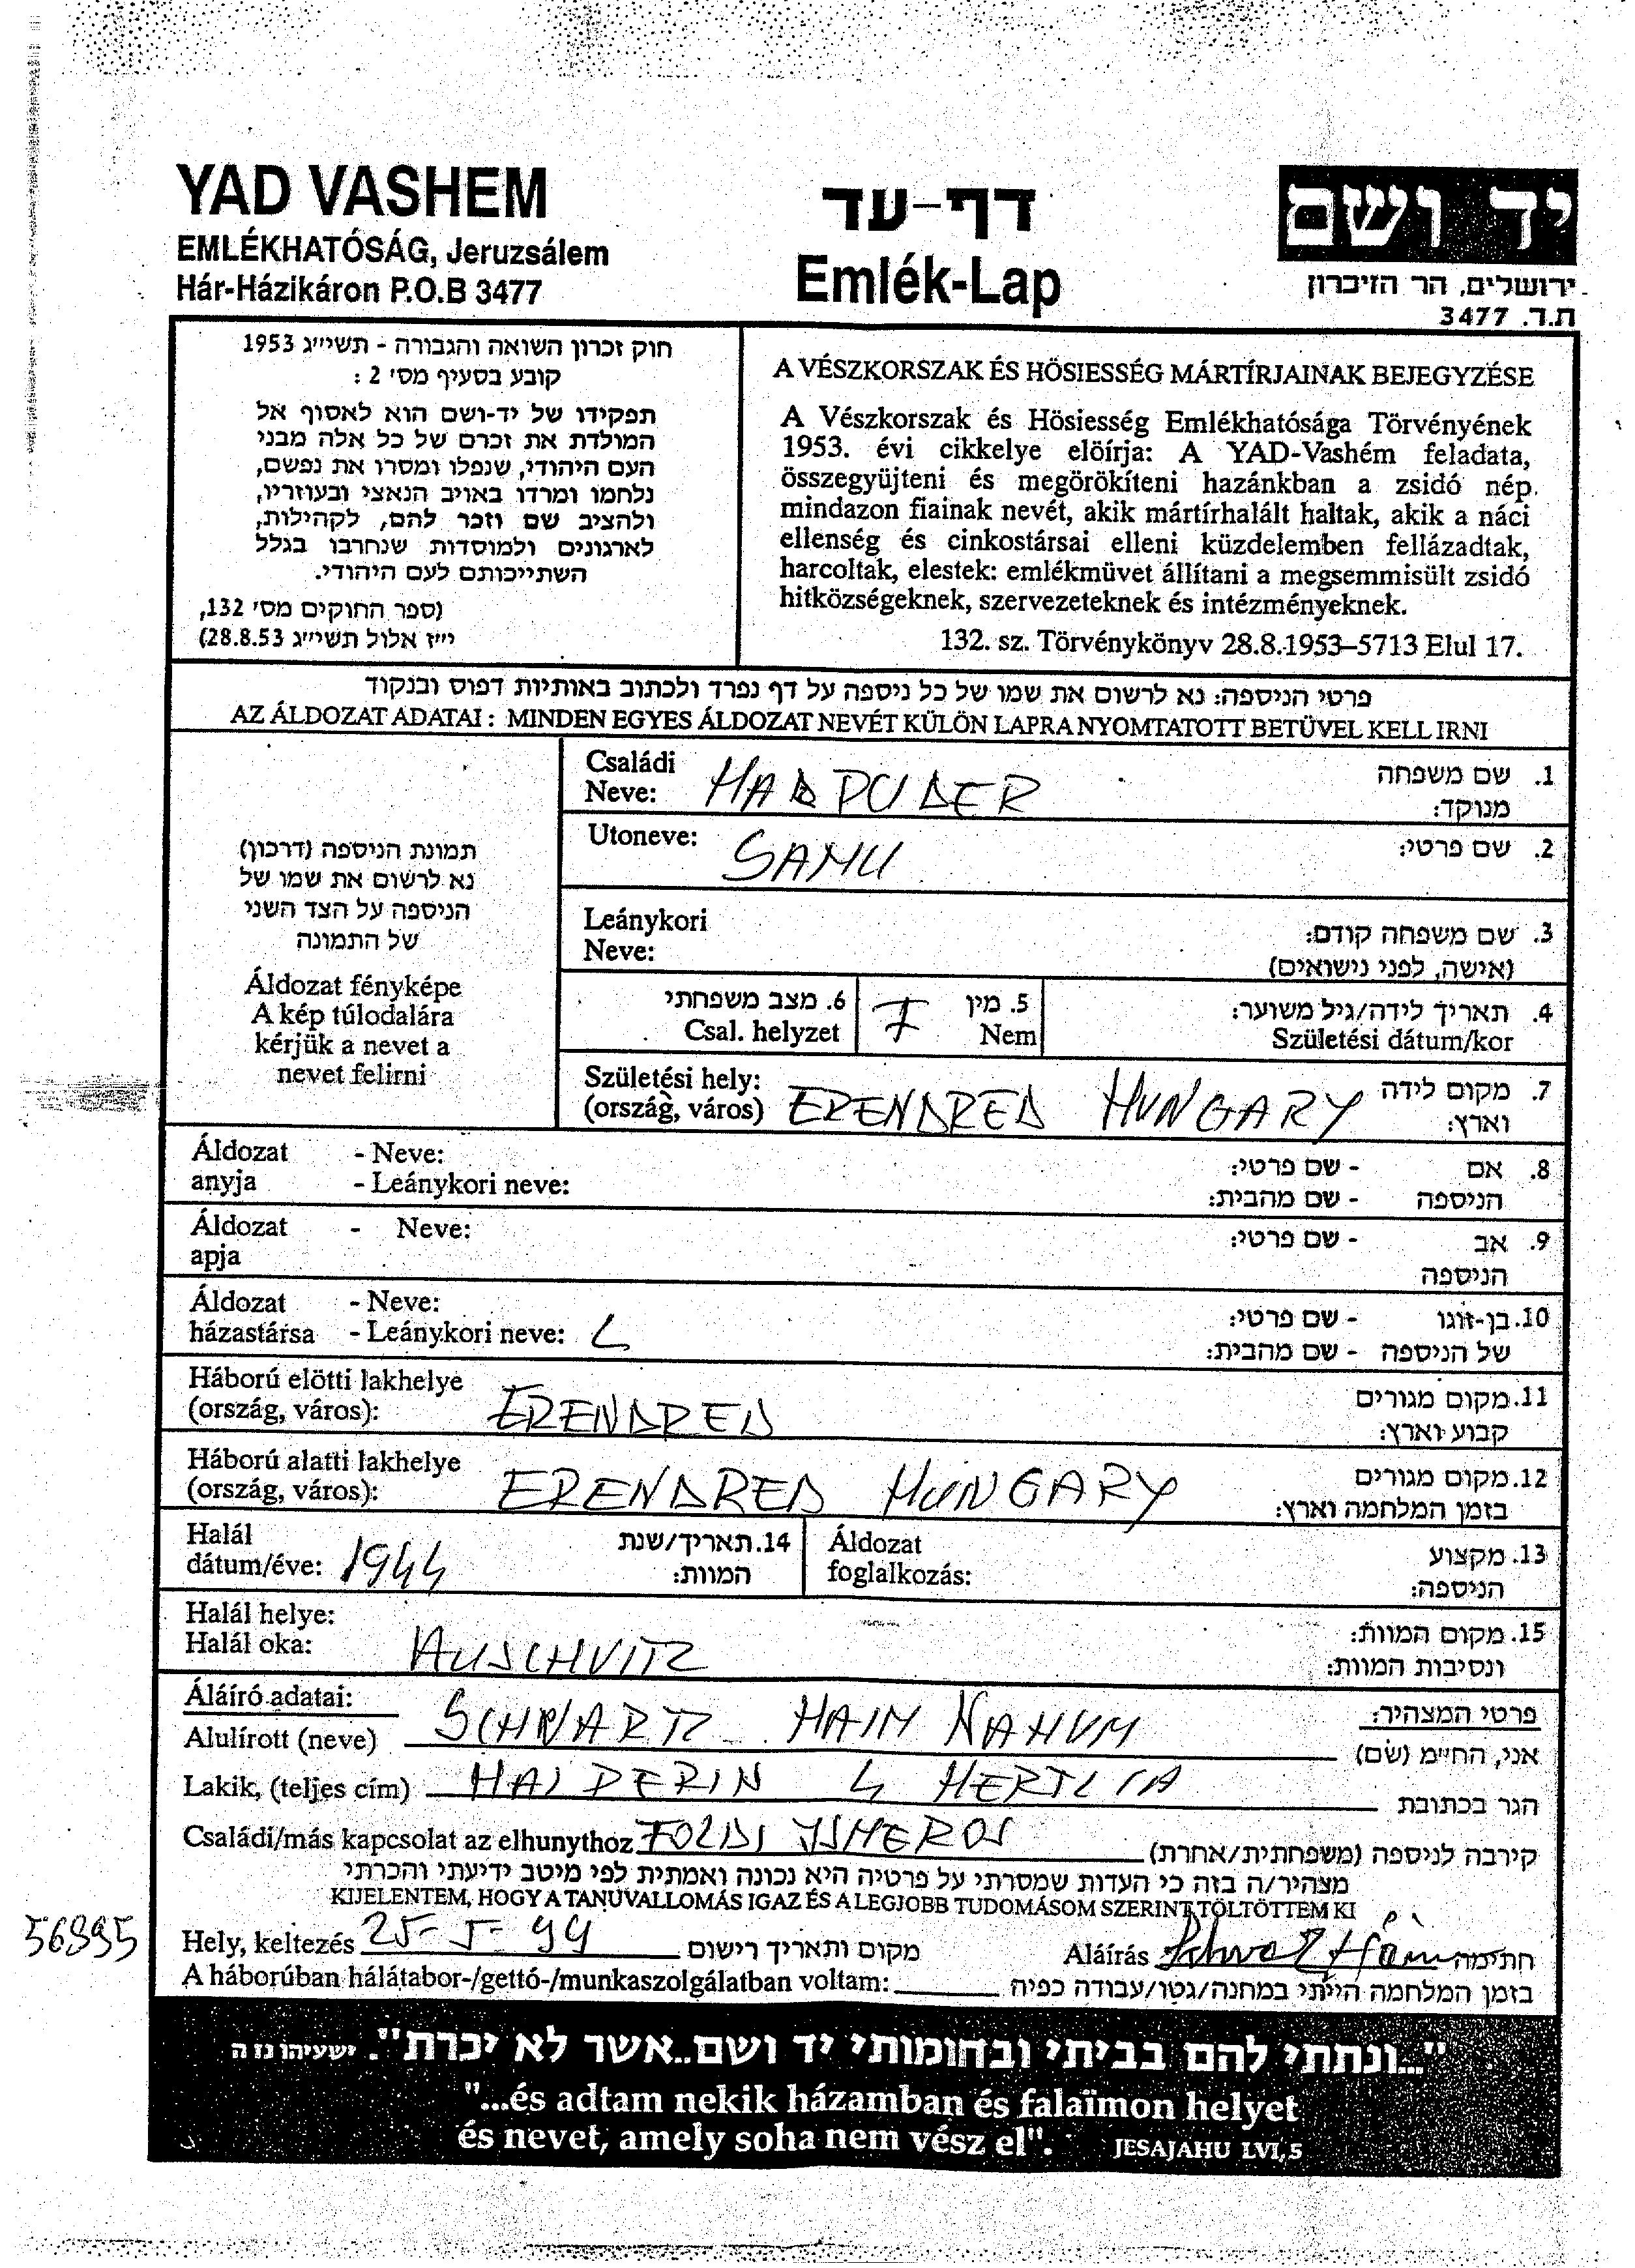 YAD VASHEM
EMLÉKHATÓSÁG, Jeruzsálem
Hár-Házikáron P.O.B 3477
דף-עד
Emlék-Lap
יד ושם
ירושלים, הר הזיכרון
ת.ד. 3477
חוק זכרון השואה והגבורה - תשי״ג 1953
קובע בסעיף מס׳ 2 :
תפקידו של יד-ושם הוא לאסוף אל
המולדת את זכרם של כל אלה מבני
העם היהודי, שנפלו ומסרו את נפשם,
נלחמו ומרדו באויב הנאצי ובעוזריו,
ולהציב שם וזכר להם, לקהילות,
לארגונים ולמוסדות שנחרבו בגלל
השתייכותם לעם היהודי.
(ספר החוקים מס׳ 132,
י״ז אלול תשי״ג 28.8.53)
A VÉSZKORSZAK ÉS HÖSIESSÉG MÁRTÍRJAINAK BEJEGYZÉSE
A Vészkorszak és Hösiesség Emlékhatósága Törvényének
1953. évi cikkelye elöírja: A YAD-Vashém feladata,
összegyüjteni és megörökíteni hazánkban a zsidó nép
mindazon fiainak nevét, akik mártírhalált haltak, akik a náci
ellenség és cinkostársai elleni küzdelemben fellázadtak,
harcoltak, elestek: emlékmüvet állítani a megsemmisült zsidó
hitközségeknek, szervezeteknek és intézményeknek.
132. sz. Törvénykönyv 28.8.1953–5713 Elul 17.
פרטי הניספה: נא לרשום את שמו של כל ניספה על דף נפרד ולכתוב באותיות דפוס ובנקוד
AZ ÁLDOZAT ADATAI : MINDEN EGYES ÁLDOZAT NEVÉT KÜLÖN LAPRA NYOMTATOTT BETÜVEL KELL IRNI
תמונת הניספה (דרכון)
נא לרשום את שמו של
הניספה על הצד השני
של התמונה
Áldozat fényképe
A kép túlodalára
kérjük a nevet a
nevet felirni
Családi
Neve: HADPUDER
1. שם משפחה
מנוקד:
Utoneve: SAMU
2. שם פרטי:
Leánykori
Neve:
3. שם משפחה קודם:
(אישה, לפני נישואים)
6. מצב משפחתי
Csal. helyzet
5. מין
Nem F
4. תאריך לידה/גיל משוער:
Születési dátum/kor
Születési hely:
(ország, város) ERENDRED HUNGARY
7. מקום לידה
וארץ:
Áldozat - Neve:
anyja - Leánykori neve:
8. אם - שם פרטי:
הניספה - שם מהבית:
Áldozat - Neve:
apja
9. אב - שם פרטי:
הניספה
Áldozat - Neve:
házastársa - Leánykori neve:
10. בן-זוגו - שם פרטי:
של הניספה - שם מהבית:
Háború elötti lakhelye
(ország, város): ERENDRED
11. מקום מגורים
קבוע וארץ:
Háború alatti lakhelye
(ország, város): ERENDRED HUNGARY
12. מקום מגורים
בזמן המלחמה וארץ:
Halál
dátum/éve: 1944
14. תאריך/שנת
המוות:
Áldozat
foglalkozás:
13. מקצוע
הניספה:
Halál helye:
Halál oka: AUSCHVITZ
15. מקום המוות:
ונסיבות המוות:
Áláíró adatai:
פרטי המצהיר:
Alulírott (neve) SCHWARTZ HAIM NAHUM
אני, החי״מ (שם)
Lakik, (teljes cím) HALPERIN 4 HERTLIA
הגר בכתובת
Családi/más kapcsolat az elhunythoz FOLDI ISMEROS
קירבה לניספה (משפחתית/אחרת)
מצהיר/ה בזה כי העדות שמסרתי על פרטיה היא נכונה ואמתית לפי מיטב ידיעתי והכרתי
KIJELENTEM, HOGY A TANUVALLOMÁS IGAZ ÉS A LEGJOBB TUDOMÁSOM SZERINT TÖLTÖTTEM KI
56995
Hely, keltezés 25-5-99
מקום ותאריך רישום
Aláírás
חתימה
A háborúban hálátabor-/gettó-/munkaszolgálatban voltam:
בזמן המלחמה הייתי במחנה/גטו/עבודה כפיה
"...ונתתי להם בביתי ובחומותי יד ושם..אשר לא יכרת". ישעיהו נז ה
"...és adtam nekik házamban és falaïmon helyet
és nevet, amely soha nem vész el". JESAJAHU LVI,5